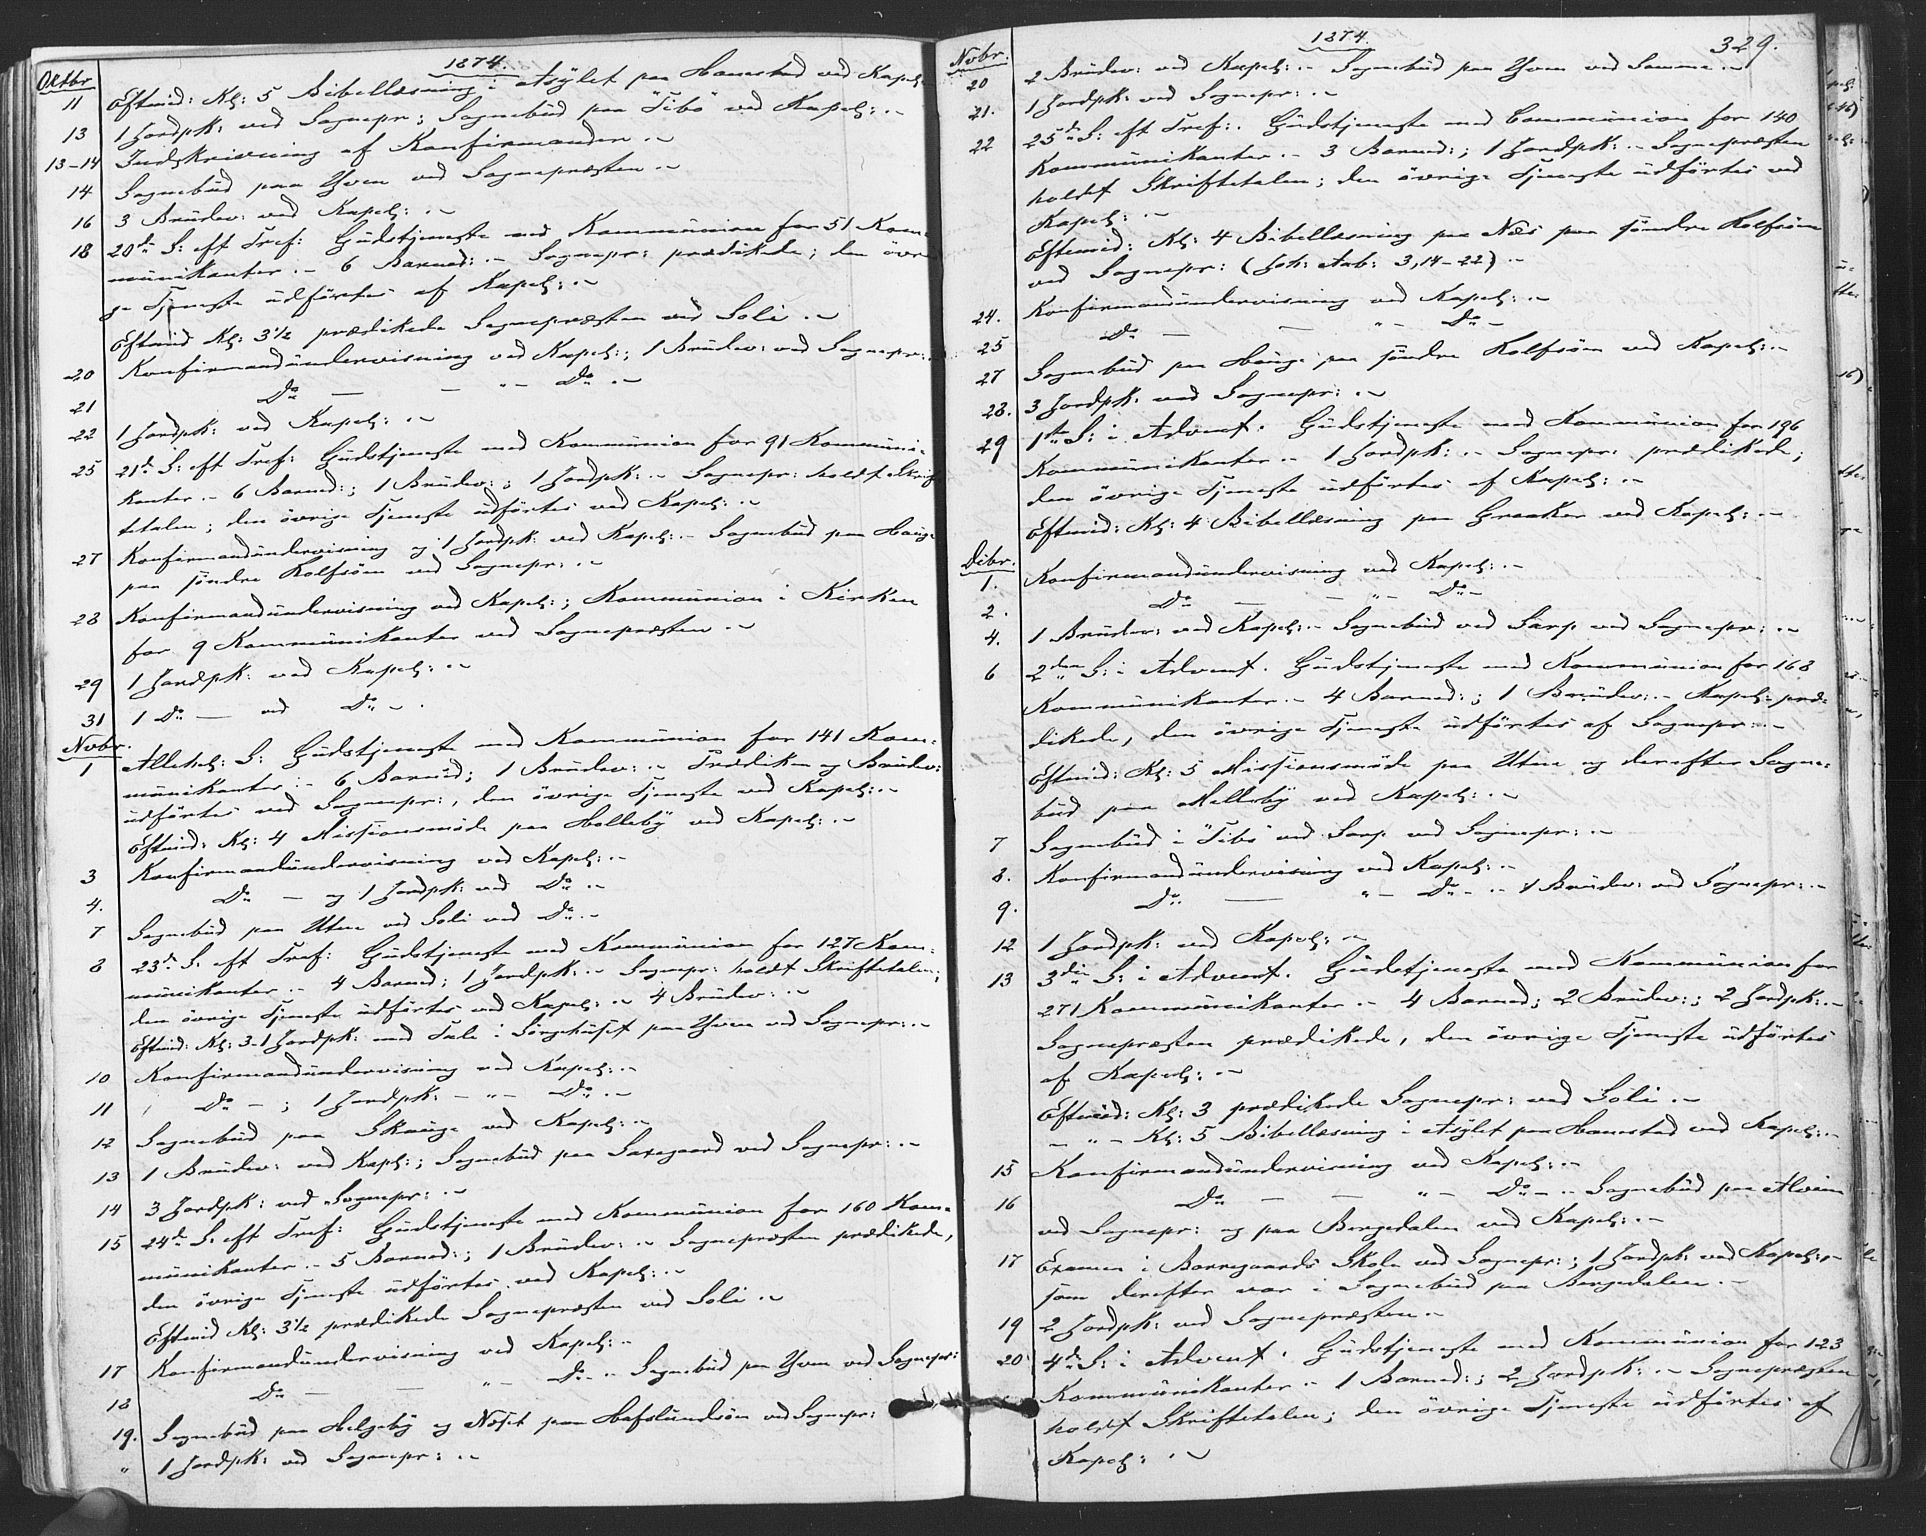 1874.
Oktbr
11 Eftmid: Kl: 5 Bibellæsning i Asylet paa Hanestad ved Kapel:
13 1 Jordpk: ved Sognepr: ; Sognebüd paa "Tibo" ved Kapel: .~
13-14 Indskrivning af Konfirmander .~
14 Sognebüd paa Yven ved Sognepræsten .~
16 3 Brüdev: ved Kapel: .~
18 20de S: eft Tref: Güdstjeneste med Kommünion for 51 Kom=
münikanter .- 6 Barned: .- Sognepr: prædikede ; den övri
ge Tjeneste üdförtes af Kapel: .~
Eftmid Kl: 3½ prædikede Sognepræsten ved Soli .~
20 Konfirmandündervisning ved Kapel: ; 1 Brüdev: ved Sognepr: .
21 Do — — „ - Do .~
22 1 Jordpk: ved Kapel: .~
25 21de S: eft Tref: Güdstjeneste med Kommünion for 91 Kommüni=
kanter .- 6 Barned: ; 1 Brüdev: ; 1 Jordpk: .- Sognepr: holdt Skrif
tetalen ; den övrige Tjeneste üdförtes ved Kapel: .~
27 Konfirmandündervisning og 1 Jordpk: ved Kapel: .- Sognebüd paa Haüge
paa söndre Kolfsöen ved Sognepr: .~
28 Konfirmandündervisning ved Kapel: ; Kommünion i Kirken
for 9 Kommünikanter ved Sognepræsten .~
29 1 Jordpk: ved Kapel: .~
31 1 Do — ved Do ~ .
Novbr.
1 Allehel: S: Güdstjeneste med Kommünion for 141 Kom=
münikanter .- 6 Barned; 1 Brüdev: .~ Prædiken og Brüdev:
üdförtes ved Sognepr: , den övrige Tjeneste ved Kapel: .~
Eftmid: Kl: 4 Missionsmöde paa Holleby ved Kapel: .~
3 Konfirmandündervisning ved Kapel: .~
4. Do — og 1 Jordpk: ved Do .~
7 Sognebüd paa Utne ved Soli ved Do .~
8 23de S: eft Tref: Güdstjeneste med Kommünion for 127 Kom=
münikanter .- 4 Barned; 1 Jordpk: .~ Sognepr: holdt Skriftetalen ;
den övrige Tjeneste üdförtes ved Kapel: .~ 4 Brüdev: .~
Eftmid: Kl: 3 - 1 Jordpk: med Tale i Sörgehüset paa Yven ved Sognepr: .~
10 Konfirmandündervisning ved Kapel: .~
11 Do — ; 1 Jordpk: — „ — Do .~
12 Sognebüd paa Skaüge ved Kapel: .~
13 1 Brüdev: ved Kapel: ; Sognebüd paa ved Sognepr: .~
14 3 Jordpk: ved Sognepr: .~
15 24de S: eft Tref: Güdstjeneste med Kommünion for 160 Kom=
münikanter .- 5 Barned: ; 1 Brüdev: .~ Sognepræsten prædikede,
den övrige Tjeneste üdförtes ved Kapel: .~
Eftmid Kl: 3½ prædikede Sognepræsten ved Soli .~
17 Konfirmandündervisning ved Kapel: .~
18 Do — — „ - Do .- Sognebüd paa Yven ved Sognepr:
19. Sognebüd paa Helgeby og Næset paa Hafslündsöen ved Sognepr:
„ 1 Jordpk: ved Sognepr: .~
1874. 329.
Novbr.
20 2 Brüdev: ved Kapel: .- Sognebüd paa Yven ved Samme .~
21. 1 Jordpk: ved Sognepr: .~
22 25de S: eft Tref: . Güdstjeneste med Communion for 140
Kommünikanter .- 3 Barned: ; 1 Jordpk: .- Sognepræsten
holdt Skriftetalen ; den övrige Tjeneste üdförtes ved
Kapel: .~
Eftmid: Kl: 4 Bibellæsning paa Næs paa söndre Kolfsöen
ved Sognepr: (Joh: Aab: 3,14-22) .~
24. Konfirmandündervisning ved Kapel: .~
25 Do — — „ - Do -
27 Sognebüd paa Haüge paa söndre Kolfsöen ved Kapel: .~
28. 3 Jordpk: ved Sognepr: .~
29 1ste S: i Advent. Güdstjeneste med Kommünion for 196
Kommünikanter .- 1 Jordpk: .- Sognepr: prædikede ;
den övrige Tjeneste üdförtes af Kapel: .~
Eftmid: Kl: 4 Bibellæsning paa Graaker ved Kapel: .~
Dcbr.
1. Konfirmandündervisning ved Kapel: .~
2. Do — — „ - Do -
4. 1 Brüdev: ved Kapel: .- Sognebüd ved Sarp ved Sognepr: .~
6 2den S: i Advent. Güdstjeneste med Kommünion for 168
Kommünikanter .- 4 Barned: ; 1 Brüdev: .- Kapel: præ=
dikede, den övrige Tjeneste üdförtes af Sognepr: .~
Eftmid: Kl: 5 Missionsmöde paa Utne og derefter Sogne=
büd paa Melleby ved Kapel: .~
7 Sognebüd i "Tibo" ved Sarp ved Sognepr: .~
8. Konfirmandündervisning ved Kapel: .~
9. Do. — „ - Do - .. 1 Brüdev: ved Sognepr: .~
12 1 Jordpk: ved Kapel: .~
13 3die S: i Advent. Güdstjeneste med Kommünion for
271 Kommünikanter .- 4 Barned; 2 Brüdev: ; 2 Jordpk: .-
Sognepræsten prædikede, den övrige Tjeneste üdförtes
af Kapel: .~
Eftmid: Kl: 3 prædikede Sognepr: ved Soli .~
— „ — Kl: 5 Bibellæsning i Asylet paa Hanestad ved Kapel: .~
15 Konfirmandündervisning ved Kapel: .~
16 Do — — „ - Do - .. Sognebüd paa Alvim
ved Sognepr: og paa Borgedalen ved Kapel: .~
17 Examen i Borregaards Skole ved Sognepr: ; 1 Jordpk: ved Kapel: .~
som derefter var i Sognebüd paa Borgedalen .~
19 2 Jordpk: ved Sognepræsten .~
20 4de S: i Advent. Güdstjeneste med Kommünion for 123
Kommünikanter .- 1 Barned: ; 2 Jordpk: .- Sognepræsten
holdt Skriftetalen ; den övrige Tjeneste üdförtes af
Kapel: .~